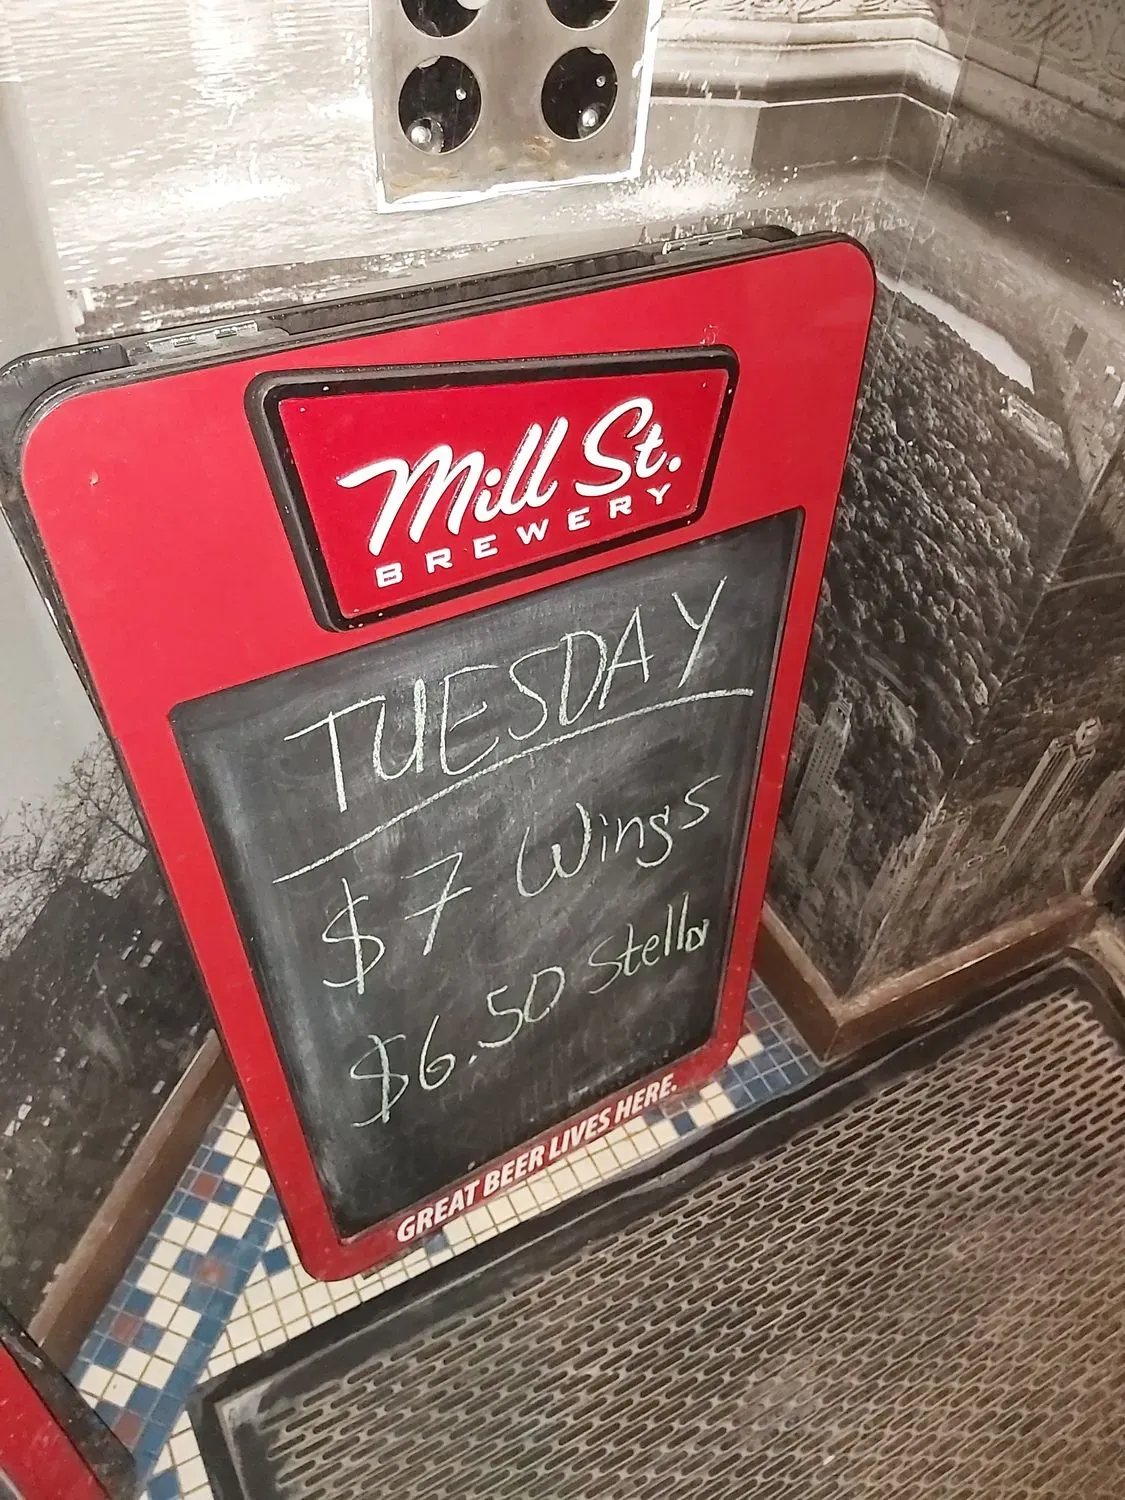 Mill St.
BREWERY
TUESDAY
$7 Wings
$6.50 Stella
GREAT BEER LIVES HERE.